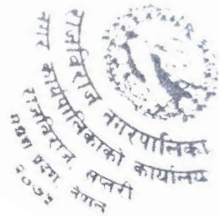 राजविराज नगरपालिका
नगर कार्यपालिकाको कार्यालय
राजविराज सप्तरी
प्रदेश नेपाल
२०७४